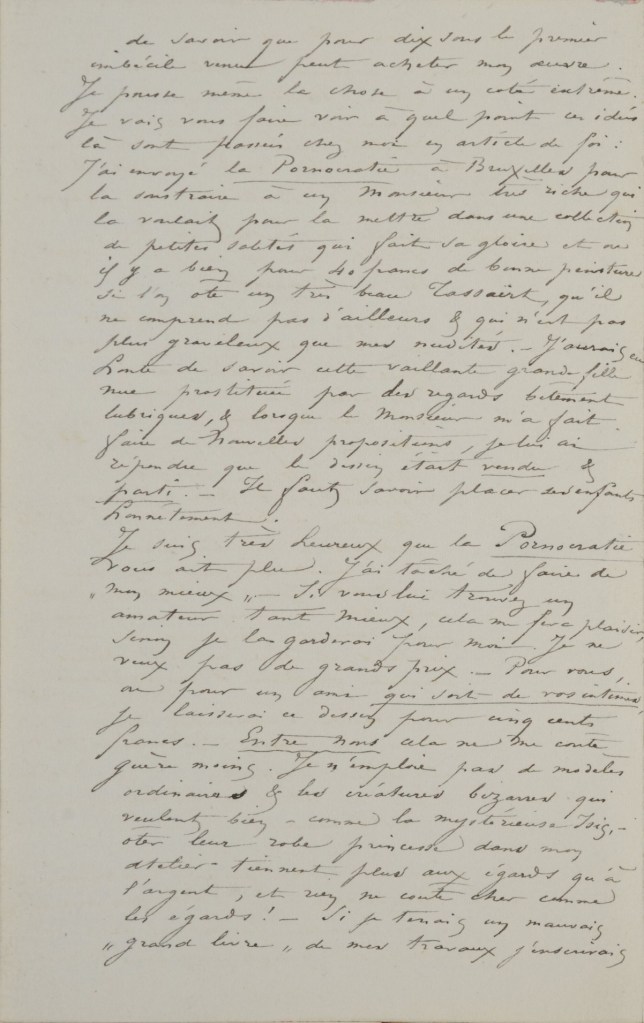 de savoir que pour dix sous le premier
imbécile venu peut acheter mon œuvre.
Je pousse même la chose à un coté extrême.
Je vais vous faire voir à quel point ces idées
là sont passées chez moi en article de foi :
J'ai envoyé la Pornocratie à Bruxelles pour
la soustraire à un Monsieur très riche qui
la voulait pour la mettre dans une collection
de petites saletés qui fait sa gloire et où
il y a bien pour 40 francs de bonne peinture
si l'on ôte un très beau Tassaërt, qu'il
ne comprend pas d'ailleurs & qui n'est pas
plus graveleux que mes nudités. – J'aurais eu
honte de savoir cette vaillante grande fille
nue prostituée par des regards bêtement
lubriques, & lorsque le Monsieur m'a fait
faire de nouvelles propositions, je lui ai
répondre que le dessin était vendu &
parti. – Il faut savoir placer ses enfants
honnêtement.
Je suis très heureux que la Pornocratie
vous ait plu. J'ai tâché de faire de
„ mon mieux „ – Si vous lui trouvez un
amateur tant mieux, cela me fera plaisir,
sinon je la garderai pour moi. Je ne
veux pas de grands prix. – Pour vous,
ou pour un ami qui soit de vos intimes,
je laisserai ce dessin pour cinq cents
francs. – Entre nous cela ne me coûte
guère moins. Je n'emploie pas de modèles
ordinaires & les créatures bizarres qui
veulent bien – comme la mystérieuse Isis, –
ôter leur robe princesse dans mon
atelier tiennent plus aux égards qu'à
l'argent, et rien ne coûte cher comme
les égards ! – Si je tenais un mauvais
„ grand livre „ de mes travaux j'inscrirais